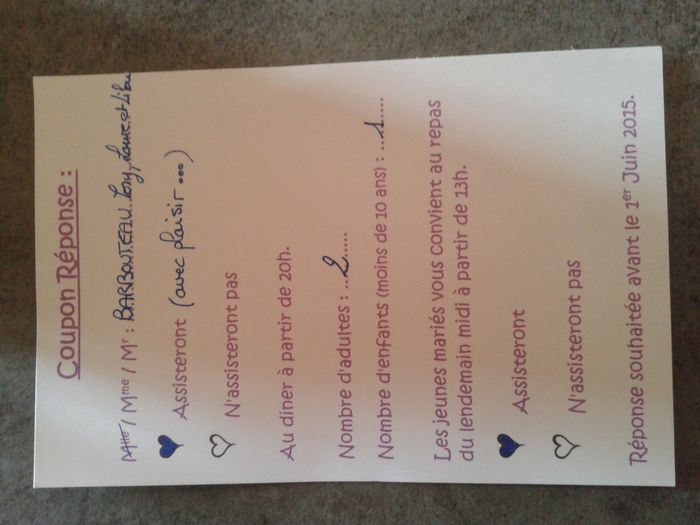 Coupon Réponse :
Mlle / Mme / Mr : BARBOUTEAU Tony, Laure et Lilou
Assisteront (avec plaisir ...)
N'assisteront pas
Au diner à partir de 20h.
Nombre d'adultes : ..2.....
Nombre d'enfants (moins de 10 ans) : ...1....
Les jeunes mariés vous convient au repas
du lendemain midi à partir de 13h.
Assisteront
N'assisteront pas
Réponse souhaitée avant le 1er Juin 2015.